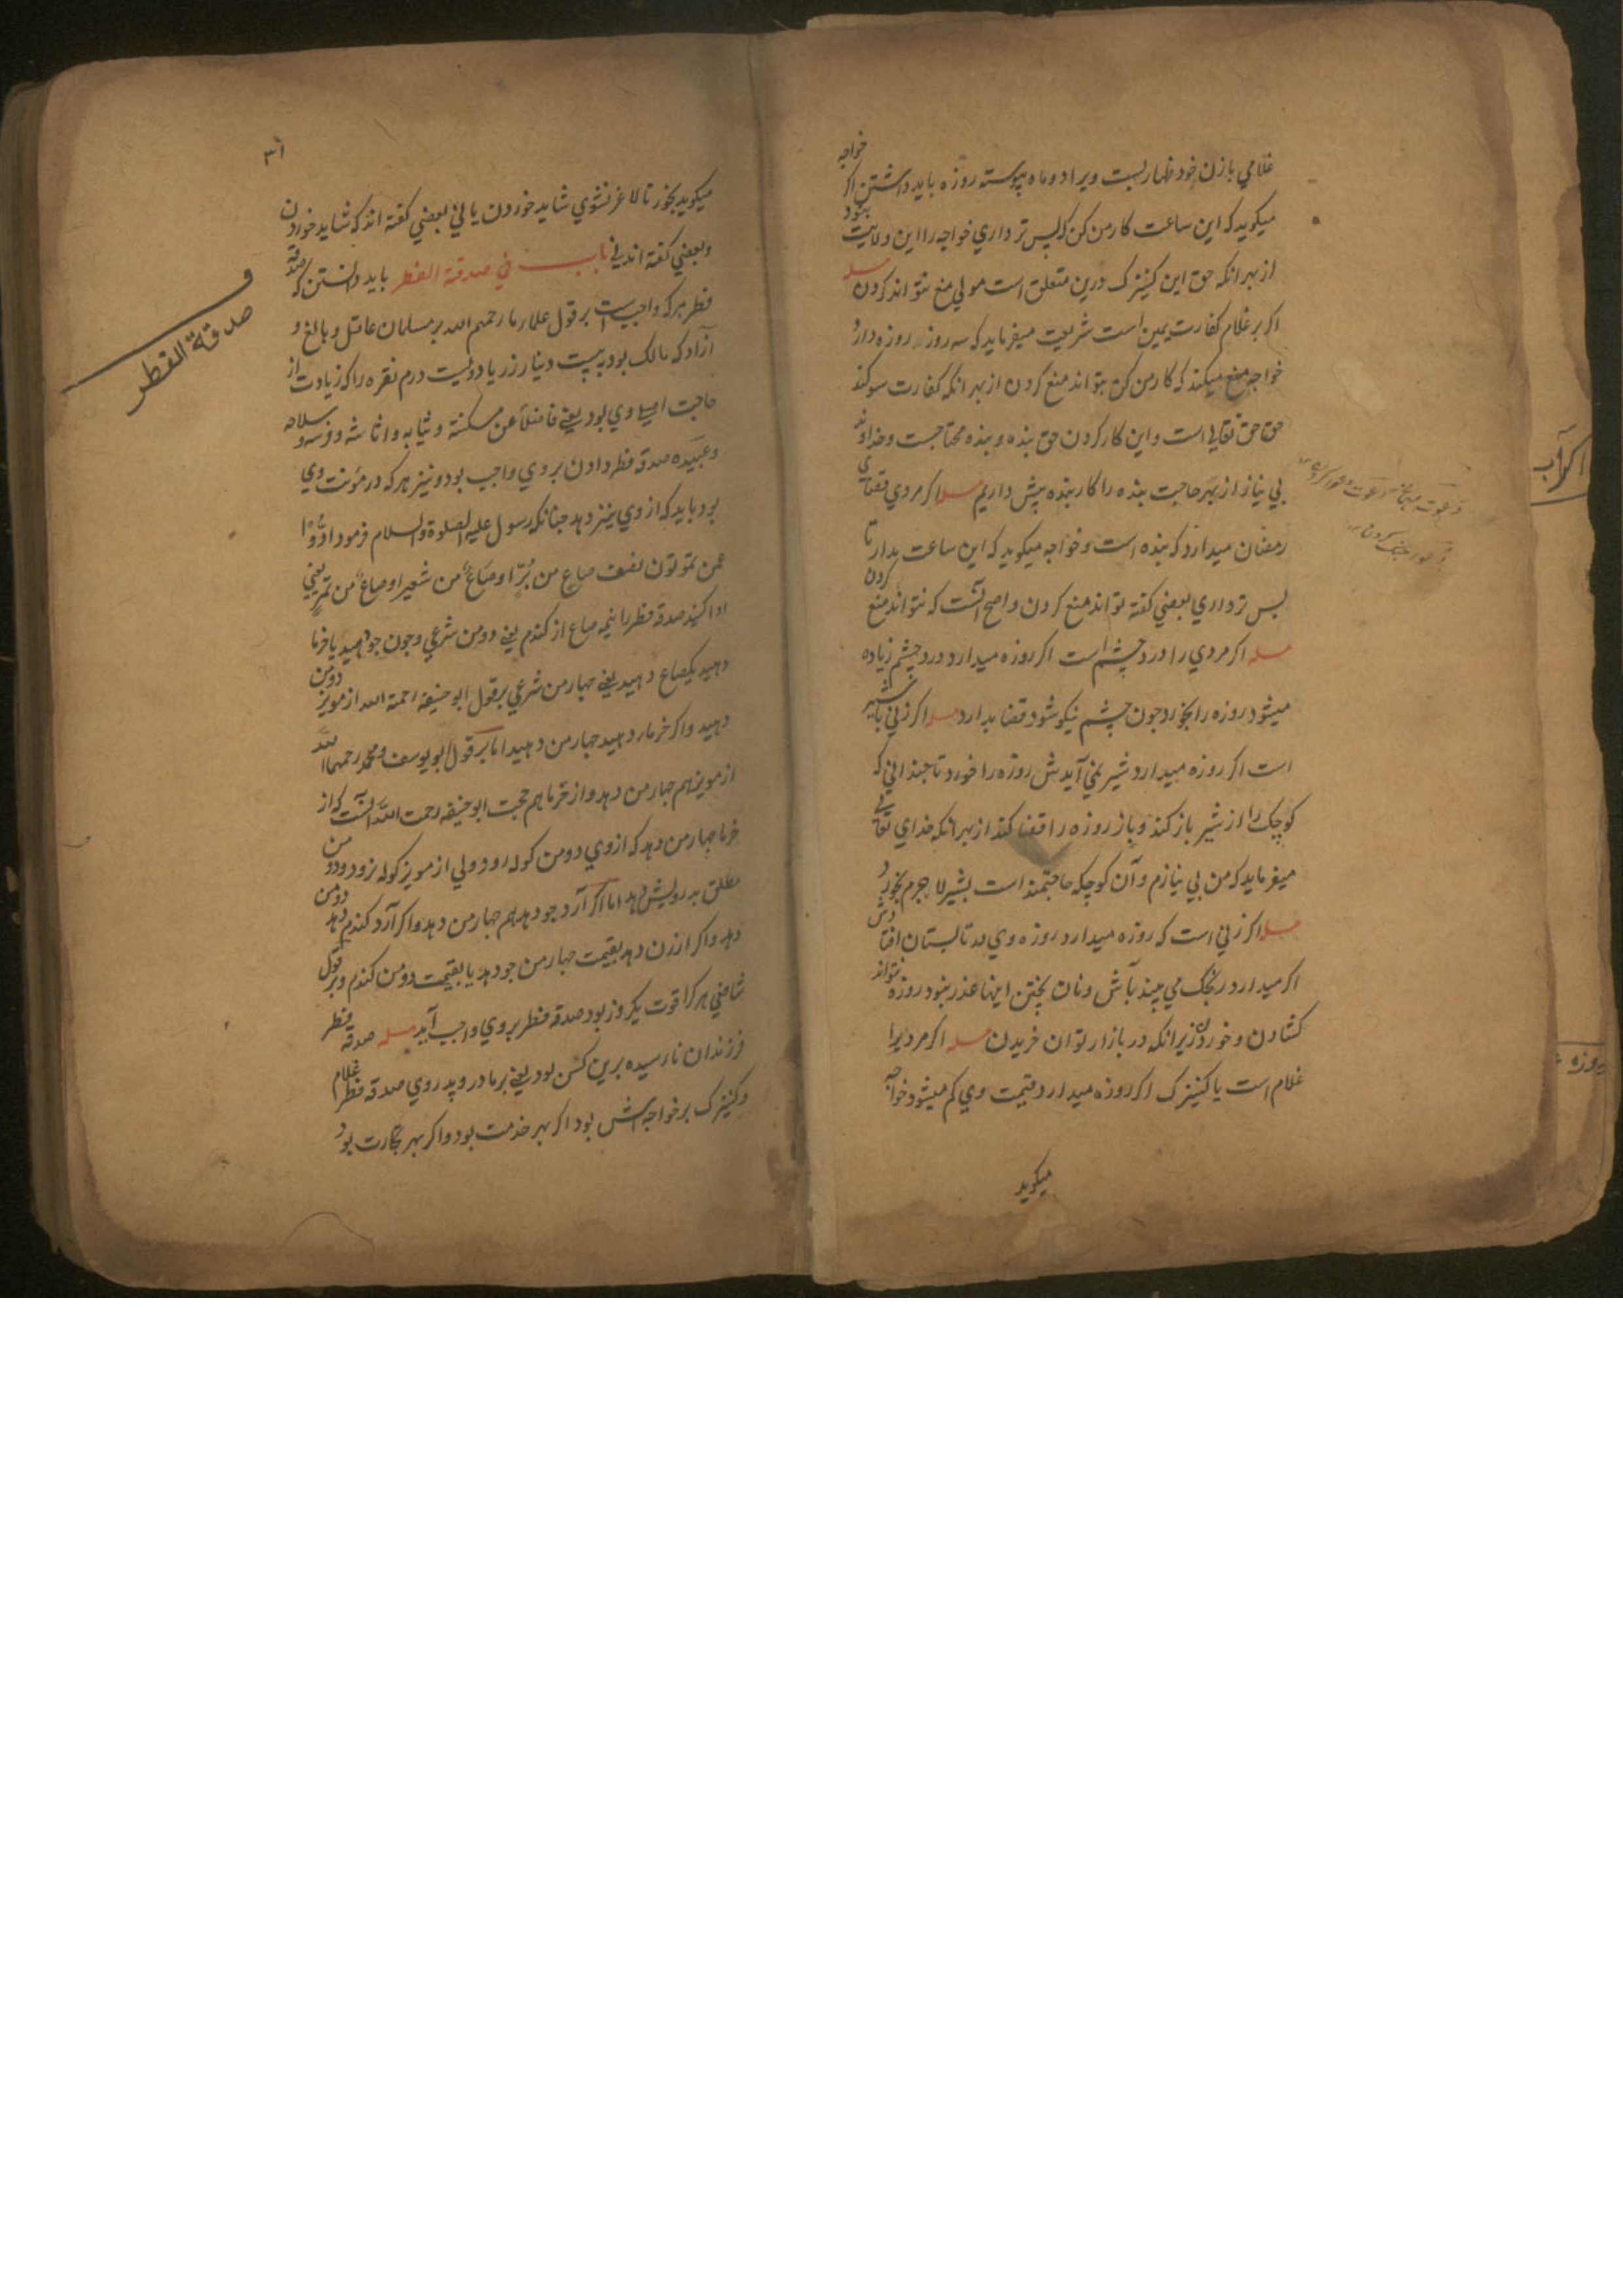 غلامي با زن خود ظهار بست ويرا دو ماه پيوسته روزه بايد داشتن اكر خواجه
ميكويد كه اين ساعت كار من كن كه پس تر داري خواجه را اين ولايت بنبود
از بهر انكه حق اين كنيزك درين متعلق است مولي منع نتواند كردن مسله
اكر بر غلام كفارت يمين است شريعت ميفرمايد كه سه روز روزه دارد
خواجه منع ميكند كه كار من كن بتواند منع كردن از بهر انكه كفارت سوكند
حق حق تعالي است و اين كار كردن حق بنده و بنده محتاجست و خداوند
بي نياز از بهر حاجت بنده را كار بنده پيش داريم مسله اكر مردي قضاي
رمضان ميدارد كه بنده است و خواجه ميكويد كه اين ساعت مدار تا
پس تر داري بعضي كفته تواند منع كردن و اصح آنست كه نتواند منع كردن
مسله اكر مردي را درد چشم است اكر روزه ميدارد درد چشم زياده
ميشود روزه را بخورد چون چشم نيكو شود قضا بدارد مسله اكر زني با شير
است اكر روزه ميدارد شير نمي آيدش روزه را خورد تا چنداني كه
كوچك را از شير باز كند و باز روزه را قضا كند از بهر انكه خداي تعالي
ميفرمايد كه من بي نيازم و آن كوچكه حاجتمند است بشير لا جرم بخورد
مسله اكر زني است كه روزه ميدارد روزه وي به تابستان افتادش
اكر ميدارد رنجك مي بيند بآش و نان پختن اينها عذر نبود روزه نتواند
كشادن و خوردن زيرا نكه در بازار توان خريدن مسله اكر مرديرا
غلام است يا كنيزك اكر روزه ميدارد قيمت وي كم ميشود خواجه
ميكويد
اكر آب
روزه
٣١
ميكويد بخور تا لاغر نشوي شايد خوردن يا ني بعضي كفته اند كه شايد خوردن
و بعضي كفته اند ني باب في صدقة الفطر بايد دانستن كه صدقه
فطر هر كه واجبيست بر قول علماء ما رحمهم الله بر مسلمان عاقل و بالغ و
آزاد كه مالك بود به بيست دينار زر يا دويست درم نقره را كه زيادت از
حاجت اصلي وي بود يعني فاضلا عن مسكنه و ثيابه و اثاثه و فرسه و سلاحه
و عبيده صدقه فطر دادن بر وي واجب بود و نيز هر كه در مؤنت وي
بود بايد كه از وي نيز دهد چنانكه رسول عليه الصلوة والسلام فرمود ادّوا
عمن تمونون نصف صاع من بُرّ او صاعٌ من شعير او صاعٌ من تمر يعني
ادا كنيد صدقه فطر را نيمه صاع از كندم يعني دو من شرعي و چون جو دهيد يا خرما
دهيد يكصاع دهيد يعني چهار من شرعي بر قول ابو حنيفه رحمة الله از مويز دو من
دهيد و اكر خرما دهيد چهار من دهيد اما بر قول ابو يوسف و محمد رحمهما الله
از مويز هم چهار من دهد و از خرما هم حجت ابو حنيفه رحمت الله آنست كه از
خرما چهار من دهد كه از وي دو من كوله رود ولي از مويز كوله نرود و دو من
مطلق به رويش دهد اما اكر آرد جو دهد هم چهار من دهد و اكر آرد كندم دهد دو من
دهد و اكر ارزن دهد بقيمت چهار من جو دهد يا بقيمت دو من كندم و بر قول
شافعي هر كرا قوت يكروز بود صدقه فطر بر وي واجب آيد مسله صدقه فطر
فرزندان نا رسيده برين كس بود يعني بر مادر و پدر وي صدقه فطر غلام
و كنيزك بر خواجه اش بود اكر بهر خدمت بود و اكر بهر تجارت بود
صدقة الفطر